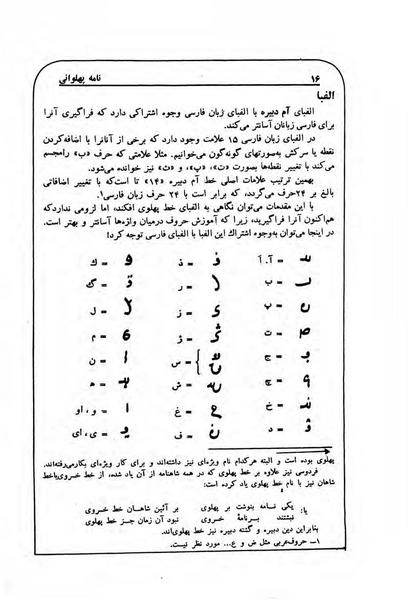 ۱۶
نامه پهلوانی
الفبا
الفبای آم دبیره با الفبای زبان فارسی وجوه اشتراکی دارد که فراگیری آنرا
برای فارسی زبانان آسانتر می‌کند.
در الفبای زبان فارسی ۱۵ علامت وجود دارد که برخی از آنانرا با اضافه‌کردن
نقطه یا سرکش به‌صورتهای گونه‌گون می‌خوانیم. مثلا علامتی که حرف «ب» رامجسم
می‌کند با تغییر نقطه‌ها بصورت «ت»، «پ»، و «ث» نیز خوانده می‌شود.
بهمین ترتیب علامات اصلی خط آم دبیره «۱۴» تا است‌که با تغییر اضافاتی
بالغ بر ۲۴حرف می‌گردد، که برابر است با ۲۴ حرف زبان فارسی۱.
با این مقدمات می‌توان نگاهی به الفبای خط پهلوی افکند، اما لزومی نداردکه
هم‌اکنون آنرا فراگیرید، زیرا که آموزش حروف درمیان واژه‌ها آسانتر و بهتر است.
در اینجا می‌توان به‌وجوه اشتراك این الفبا با الفبای فارسی توجه کرد!
= آ، أ = ذ = ك
= ب = ر = گ
= پ = ز = ل
= ت = ژ = م
= ج = س = ن
= چ = ش = ه
= خ = غ = و ، او
= د = ف = ی، ای
پهلوی بوده است و البته هرکدام نام ویژه‌ای نیز داشته‌اند و برای کار ویژه‌ای بکارمی‌رفته‌اند.
فردوسی نیز علاوه بر خط پهلوی که در همه شاهنامه از آن یاد شده، از خط خسروی‌یاخط
شاهان نیز با نام خط پهلوی یاد کرده است:
یکی نامه بنوشت بر پهلوی بر آئین شاهان خط خسروی
یا:
نبشتند برنامهٔ خسروی نبود آن زمان جز خط پهلوی
بنابراین دین دبیره و گشته دبیره نیز خط پهلوی‌اند.
۱ـ حروف‌عربی مثل ض و ع... مورد نظر نیست.